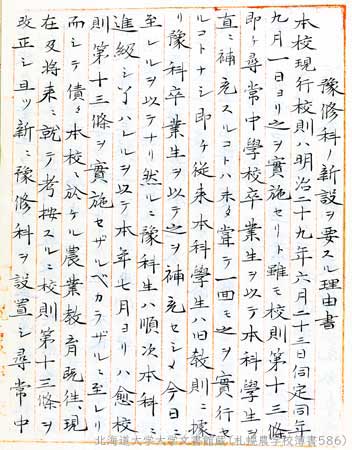 豫修科ノ新設ヲ要スル理由書
本校現行校則ハ明治二十九年六月二十三日伺定同年
九月一日ヨリ之ヲ實施セリト雖モ校則第十三條
即チ尋常中學校卒業生ヲ以テ本科學生ヲ
直ニ補充スルコトハ未タ嘗テ一回モ之ヲ實行セ
ルコトナシ即チ従来本科學生ハ旧教則ニ據
リ豫科卒業生ヲ以テ之ヲ補充セシメ今日ニ
至レルヲ以テナリ然ルニ豫科生ハ順次本科ニ
進級シ了ハレルヲ以テ本年七月ヨリハ愈校
則第十三條ヲ實施セザルベカラザルニ至レリ
而シテ債々本校ニ於ケル農業教育既往、現
在及将来ニ就テ考按スルニ校則第十三條ヲ
改正シ且ツ新ニ豫修科ヲ設置シ尋常中
北海道大学大学文書館蔵（札幌農学校簿書586）